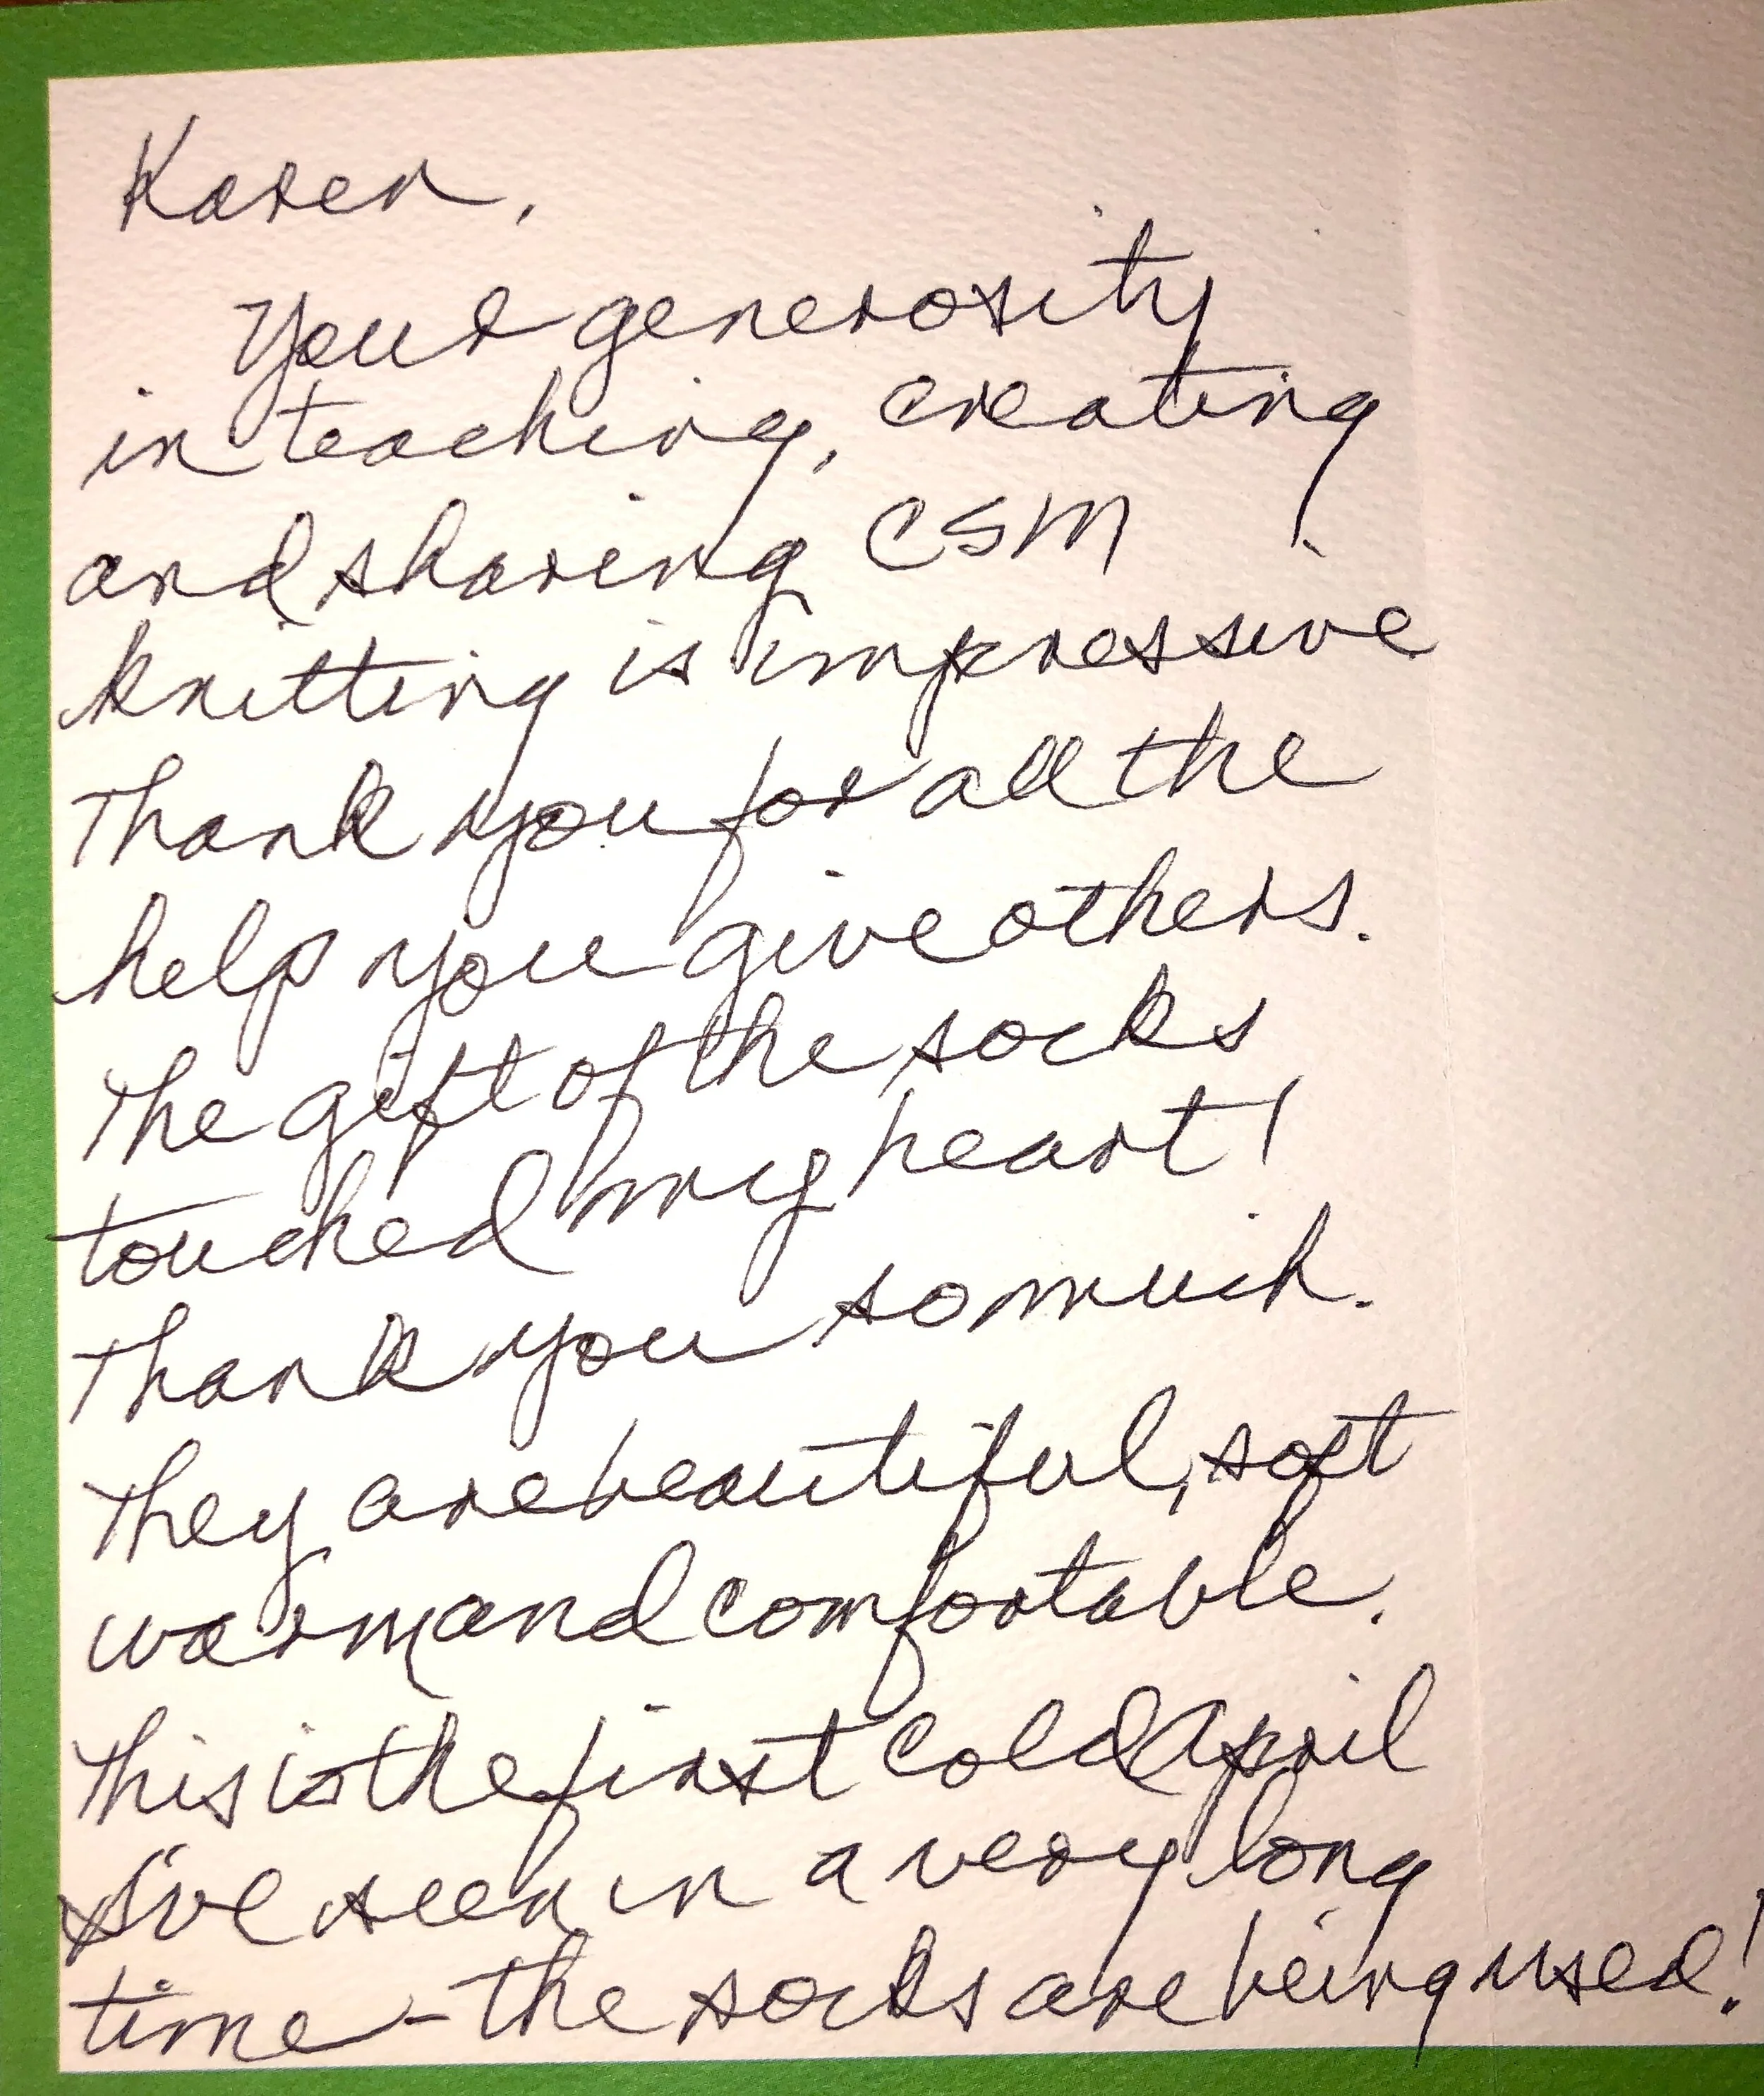 Karen,
Your generosity
in teaching, creating
and sharing CSM
knitting is impressive
Thank you for all the
help you give others.
The gift of the socks
touched my heart!
Thank you so much.
They are beautiful, soft
warm and comfortable.
This is the first cold April
I've seen in a very long
time - the socks are being used!